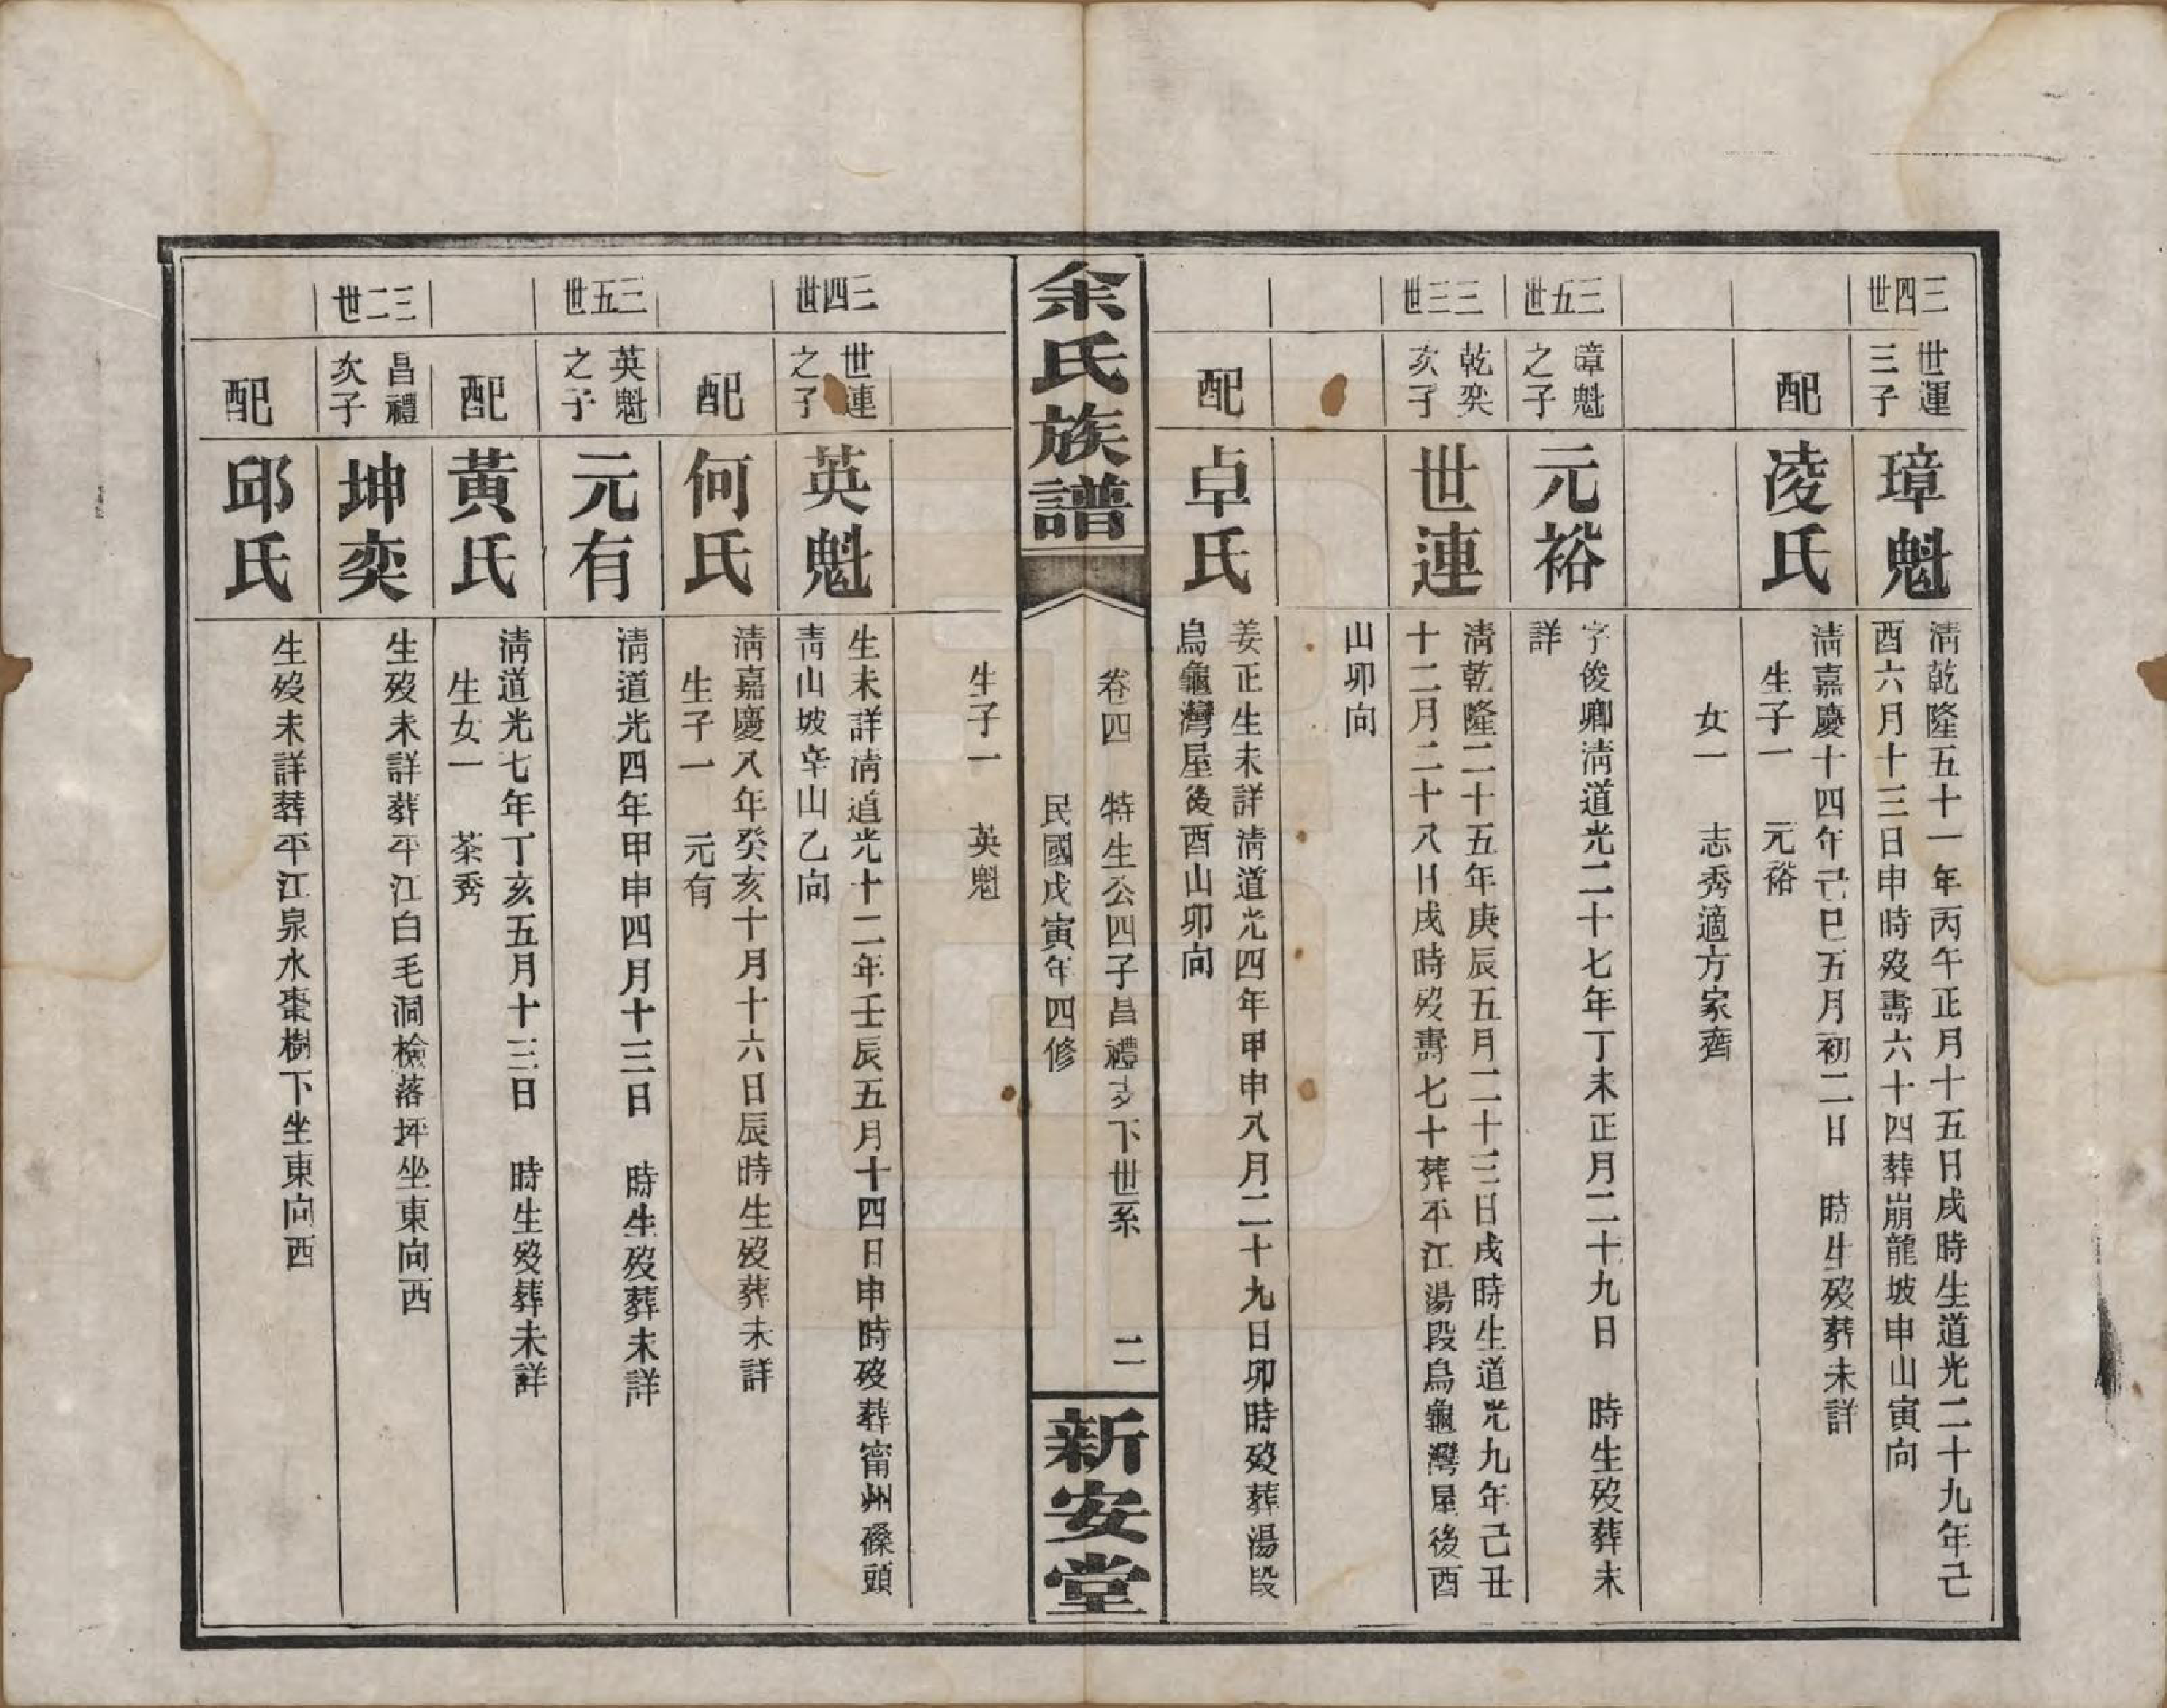 三四世
世運
三子
璋魁
清乾隆五十一年丙午正月十五日戌時生道光二十九年己
酉六月十三日申時歿壽六十四葬崩龍坡申山寅向
配
凌氏
清嘉慶十四年己巳五月初二日　時生歿葬未詳
生子一　元裕
女一　志秀適方家齊
三五世
璋魁
之子
元裕
字俊卿清道光二十七年丁未正月二十九日　時生歿葬未
詳
三三世
乾奕
次子
世連
清乾隆二十五年庚辰五月二十三日戌時生道光九年己丑
十二月二十八日戌時歿壽七十葬平江湯段烏龜灣屋後酉
山卯向
配
卓氏
姜正生未詳清道光四年甲申八月二十九日卯時歿葬湯段
烏龜灣屋後酉山卯向
余氏族譜
卷四　特生公四子昌禮支下世系　二
民國戊寅年四修
新安堂
生子一　英魁
三四世
世連
之子
英魁
生未詳清道光十二年壬辰五月十四日申時歿葬甯州磉頭
靑山坡辛山乙向
配
何氏
清嘉慶八年癸亥十月十六日辰時生歿葬未詳
生子一　元有
三五世
英魁
之子
元有
清道光四年甲申四月十三日　時生歿葬未詳
配
黃氏
清道光七年丁亥五月十三日　時生歿葬未詳
生女一　茶秀
三二世
昌禮
次子
坤奕
生歿未詳葬平江白毛洞檢落坪坐東向西
配
邱氏
生歿未詳葬平江泉水棗樹下坐東向西